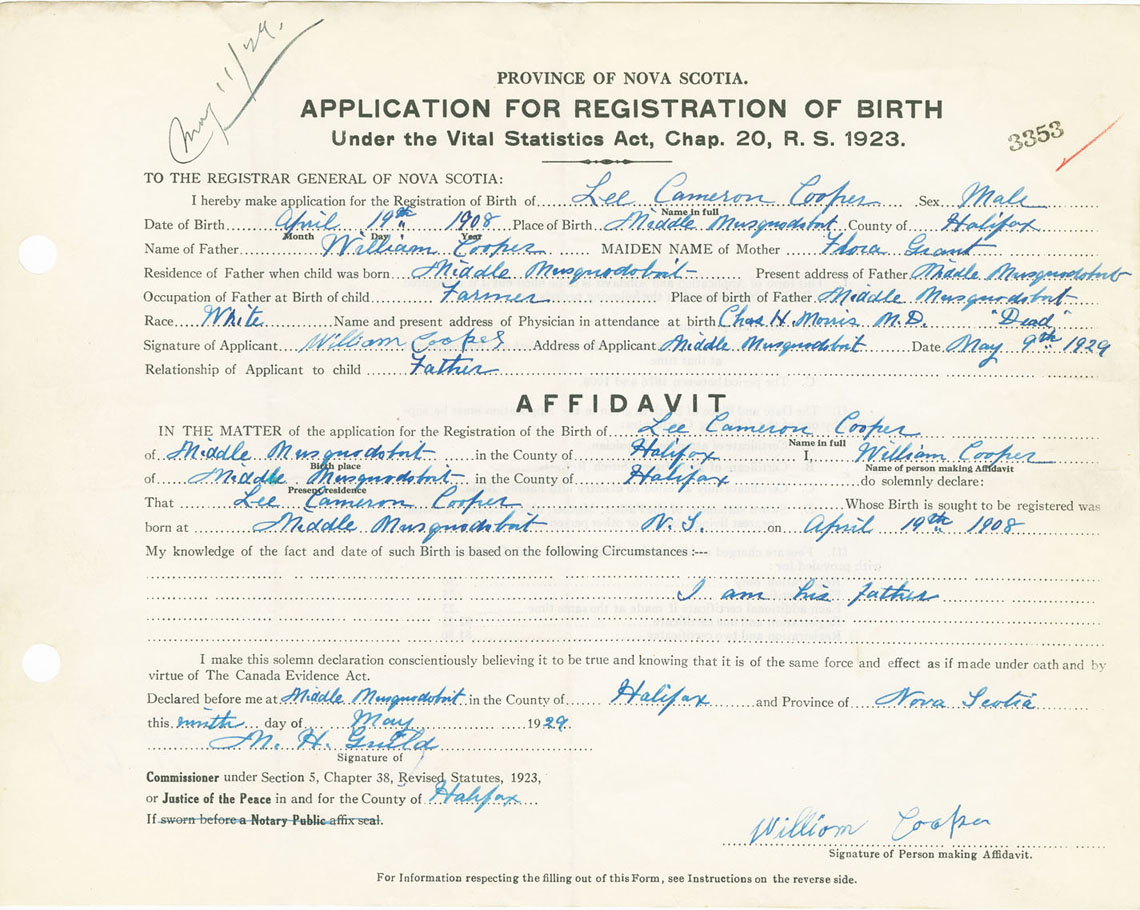 May 11/29.
PROVINCE OF NOVA SCOTIA.
APPLICATION FOR REGISTRATION OF BIRTH
Under the Vital Statistics Act, Chap. 20, R. S. 1923.
3353
TO THE REGISTRAR GENERAL OF NOVA SCOTIA:
I hereby make application for the Registration of Birth of Lee Cameron Cooper Sex Male
Name in full
Date of Birth April 19th 1908 Place of Birth Middle Musquodobit County of Halifax
Month Day Year
Name of Father William Cooper MAIDEN NAME of Mother Flora Grant
Residence of Father when child was born Middle Musquodoboit Present address of Father Middle Musquodoboit
Occupation of Father at Birth of child Farmer Place of birth of Father Middle Musquodobit
Race White Name and present address of Physician in attendance at birth Chas H. Morris M.D. "Dead"
Signature of Applicant William Cooper Address of Applicant Middle Musquodobit Date May 9th 1929
Relationship of Applicant to child Father
AFFIDAVIT
IN THE MATTER of the application for the Registration of the Birth of Lee Cameron Cooper
Name in full
of Middle Musquodobit in the County of Halifax I, William Cooper
Birth place Name of person making Affidavit
of Middle Musquodobit in the County of Halifax do solemnly declare:
Present residence
That Lee Cameron Cooper Whose Birth is sought to be registered was
born at Middle Musquodobit N.S. on April 19th 1908
My knowledge of the fact and date of such Birth is based on the following Circumstances :---
I am his father
I make this solemn declaration conscientiously believing it to be true and knowing that it is of the same force and effect as if made under oath and by
virtue of The Canada Evidence Act.
Declared before me at Middle Musquodobit in the County of Halifax and Province of Nova Scotia
this ninth day of May 1929
M. H. Guild
Signature of
Commissioner under Section 5, Chapter 38, Revised Statutes, 1923,
or Justice of the Peace in and for the County of Halifax
If sworn before a Notary Public affix seal.
William Cooper
Signature of Person making Affidavit.
For Information respecting the filling out of this Form, see Instructions on the reverse side.